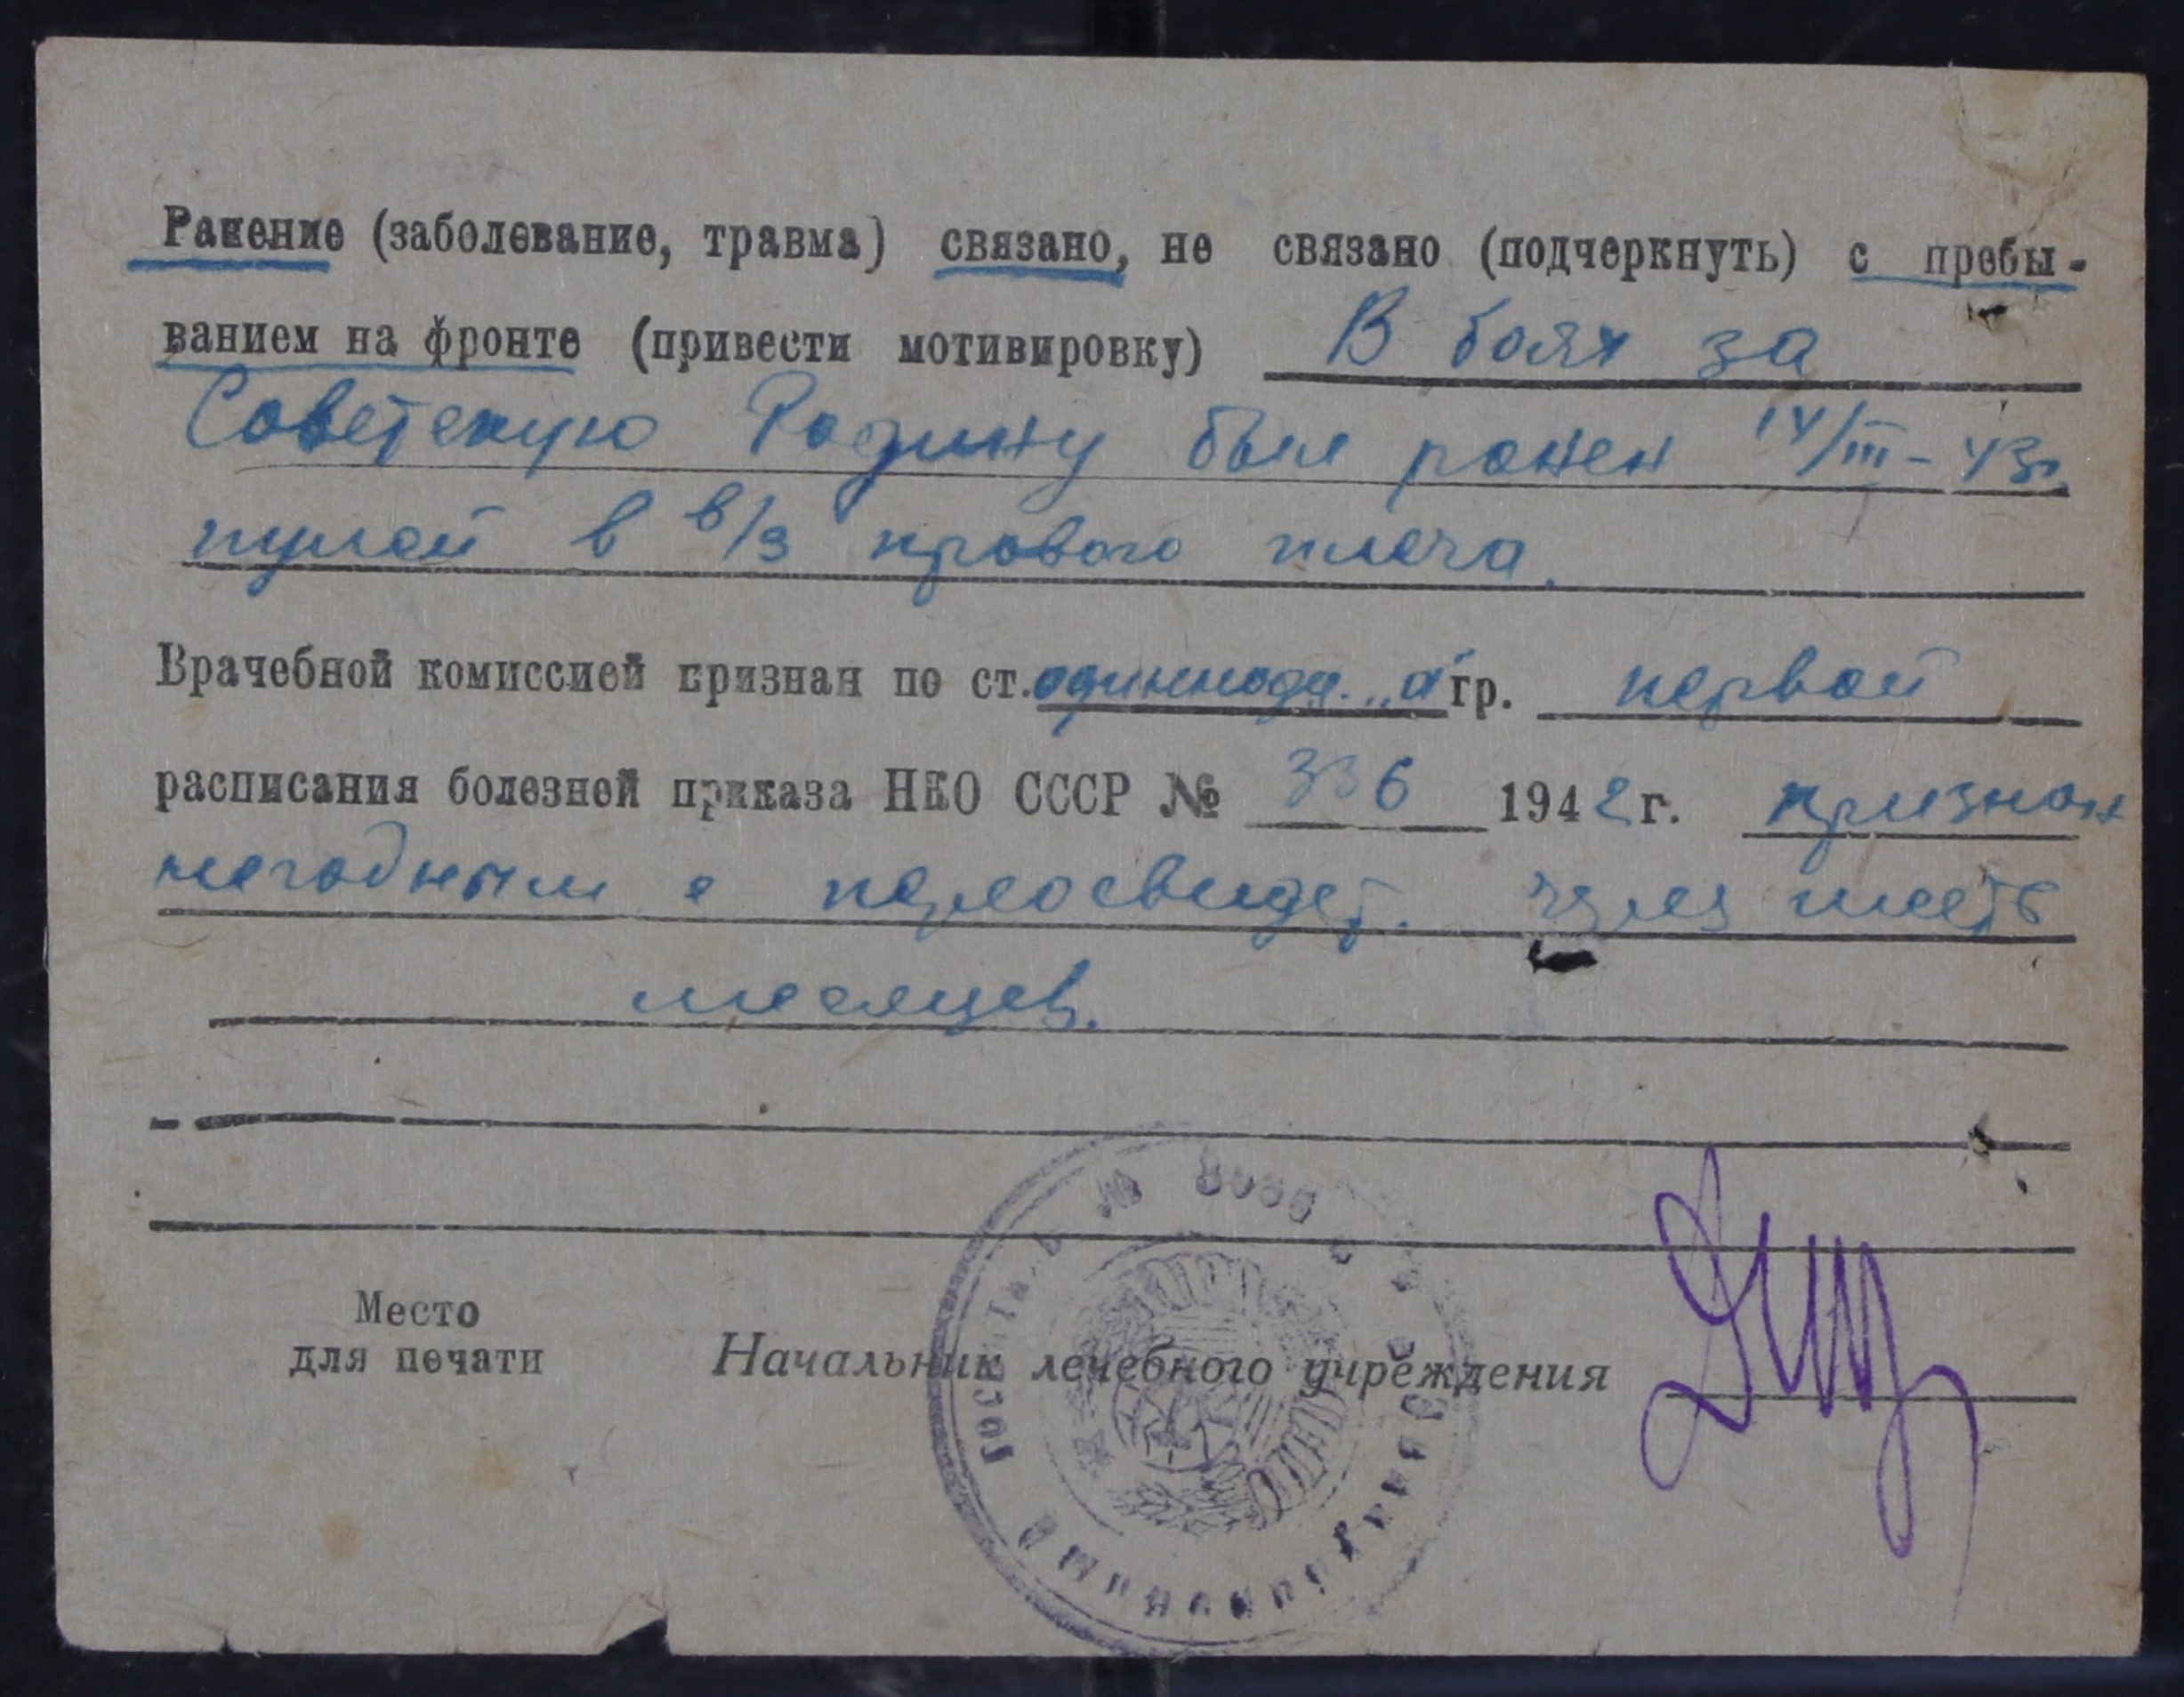 Ранение (заболевание, травма) связано, не связано (подчеркнуть) с пребы-
ванием на фронте (привести мотивировку) В боях за
Советскую Родину был ранен 14/III-43г.
пулей в в/з правого плеча.
Врачебной комиссией признан по ст. одиннадц. „а" гр. первой
расписания болезней приказа НКО СССР № 336 1942 г. признан
негодным с переосвидет. через шесть
месяцев.
Место
для печати
Начальник лечебного учреждения